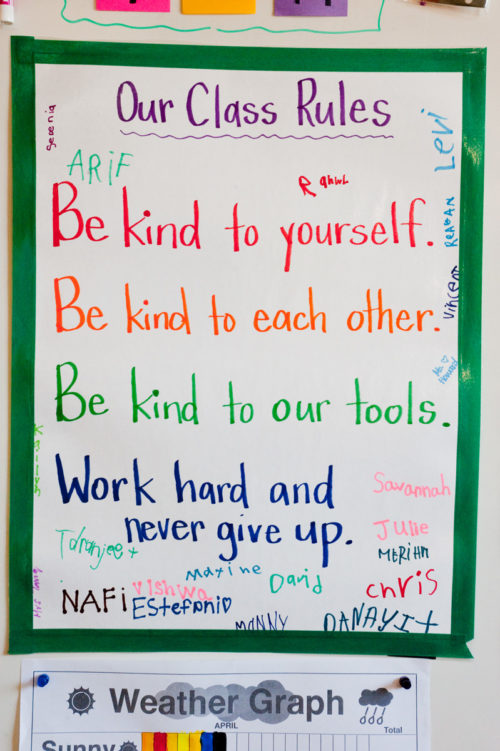 Our Class Rules
Serenia
Levi
ARiF
Rahul
Be kind to yourself.
REAGAN
Vincent
Be kind to each other.
Be kind to our tools.
Work hard and
never give up.
Savannah
Julie
Taranjeet
MERiHA
Maxine
David
Vishwa
chris
NAFi
EStefani
MANNY
DANAYIt
Weather Graph
APRIL
Total
Sunny